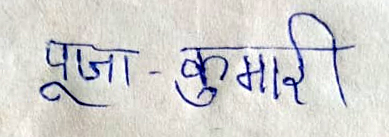 पूजा - कुमारी